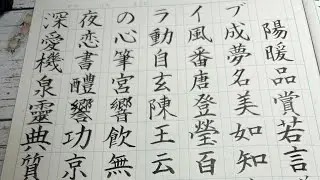 陽暖品賞若言
ブ成夢名美如知
イ風番唐登瑩百
ラ動自玄陳王云
の心筆宮響飲無
夜恋書醴響功京
深愛機泉靈典質